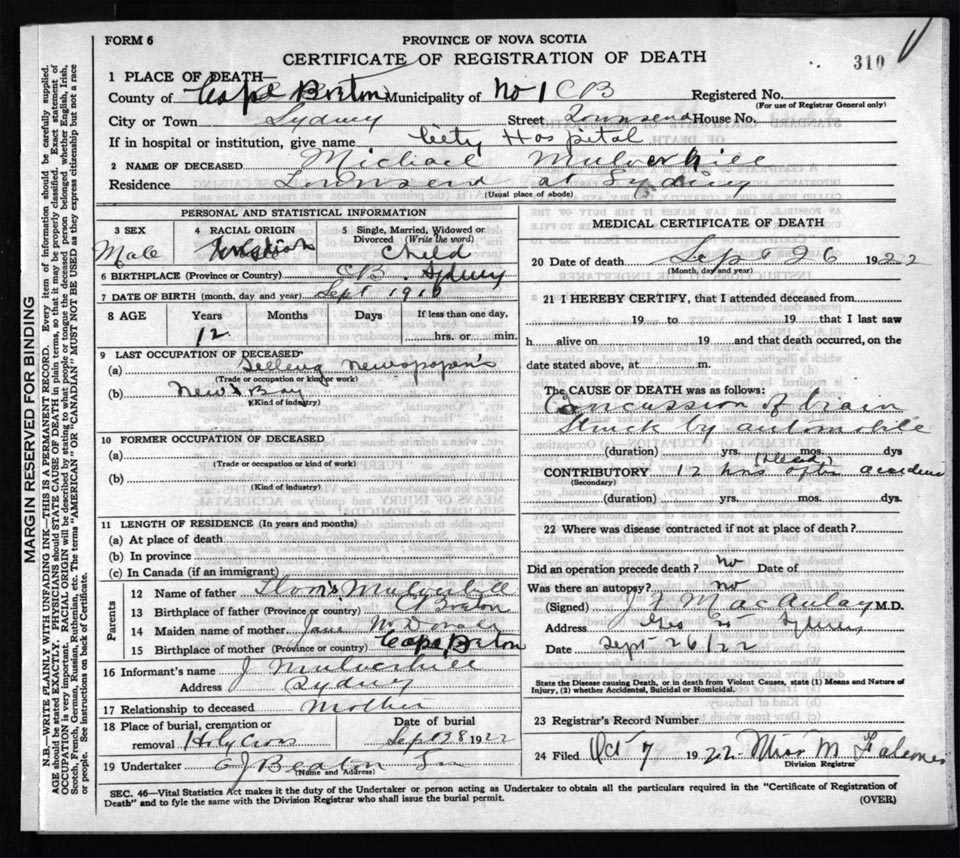 FORM 6
PROVINCE OF NOVA SCOTIA
CERTIFICATE OF REGISTRATION OF DEATH
310
1 PLACE OF DEATH—
County of Cape Breton Municipality of No 1 CB Registered No.
(For use of Registrar General only)
City or Town Sydney Street Townsend House No.
If in hospital or institution, give name City Hospital
2 NAME OF DECEASED Michael Mulverhill
Residence Townsend at Sydney
(Usual place of abode)
PERSONAL AND STATISTICAL INFORMATION
3 SEX 4 RACIAL ORIGIN 5 Single, Married, Widowed or Divorced (Write the word)
Male Child
6 BIRTHPLACE (Province or Country) CB. Sydney
7 DATE OF BIRTH (month, day and year) Sept 1910
8 AGE Years Months Days If less than one day,
12 hrs. or min.
9 LAST OCCUPATION OF DECEASED
(a) Selling Newspapers
(Trade or occupation or kind of work)
(b) News Boy
(Kind of industry)
10 FORMER OCCUPATION OF DECEASED
(a)
(Trade or occupation or kind of work)
(b)
(Kind of industry)
11 LENGTH OF RESIDENCE (In years and months)
(a) At place of death
(b) In province
(c) In Canada (if an immigrant)
Parents
12 Name of father Mulverhill
13 Birthplace of father (Province or country) C Breton
14 Maiden name of mother Jane
15 Birthplace of mother (Province or country) Cape Breton
16 Informant's name J Mulverhill
Address Sydney
17 Relationship to deceased Mother
18 Place of burial, cremation or removal Holy Cross Date of burial Sept 28 1922
19 Undertaker J Beaton
(Name and Address)
MEDICAL CERTIFICATE OF DEATH
20 Date of death Sept 26 1922
(Month, day and year)
21 I HEREBY CERTIFY, that I attended deceased from
19 to 19 that I last saw
h alive on 19 and that death occurred, on the
date stated above, at m.
The CAUSE OF DEATH was as follows:
Concussion of brain
Struck by automobile
(duration) yrs. mos. dys
(died)
CONTRIBUTORY 12 hrs after accident
(Secondary)
(duration) yrs. mos. dys.
22 Where was disease contracted if not at place of death?
Did an operation precede death? No Date of
Was there an autopsy? No
(Signed) MacAulay M.D.
Address
Date Sept 26/22
State the Disease causing Death, or in death from Violent Causes, state (1) Means and Nature of Injury, (2) whether Accidental, Suicidal or Homicidal.
23 Registrar's Record Number
24 Filed Oct 7 1922 Miss M
Division Registrar
SEC. 46—Vital Statistics Act makes it the duty of the Undertaker or person acting as Undertaker to obtain all the particulars required in the "Certificate of Registration of
Death" and to fyle the same with the Division Registrar who shall issue the burial permit.
(OVER)
MARGIN RESERVED FOR BINDING
N.B.—WRITE PLAINLY WITH UNFADING INK—THIS IS A PERMANENT RECORD. Every item of information should be carefully supplied.
AGE should be stated EXACTLY. PHYSICIANS should STATE CAUSE OF DEATH in plain terms, so that it may be properly classified. Exact statement of
OCCUPATION is very important. RACIAL ORIGIN will be described by stating to what people or tongue the deceased person belonged whether English, Irish,
Scotch, French, German, Russian, Ruthenian, etc. The terms "AMERICAN" OR "CANADIAN" MUST NOT BE USED as they express citizenship but not a race
or people. See instructions on back of Certificate.